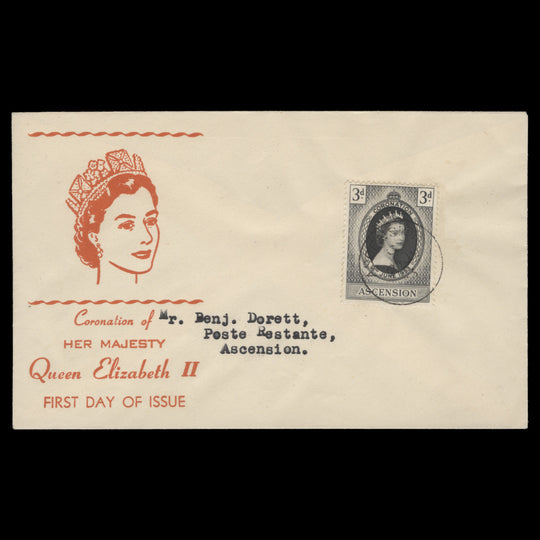 3d 3d
CORONATION
ASCENSION
Coronation of
HER MAJESTY
Queen Elizabeth II
FIRST DAY OF ISSUE
Mr. Benj. Dorett,
Poste Restante,
Ascension.